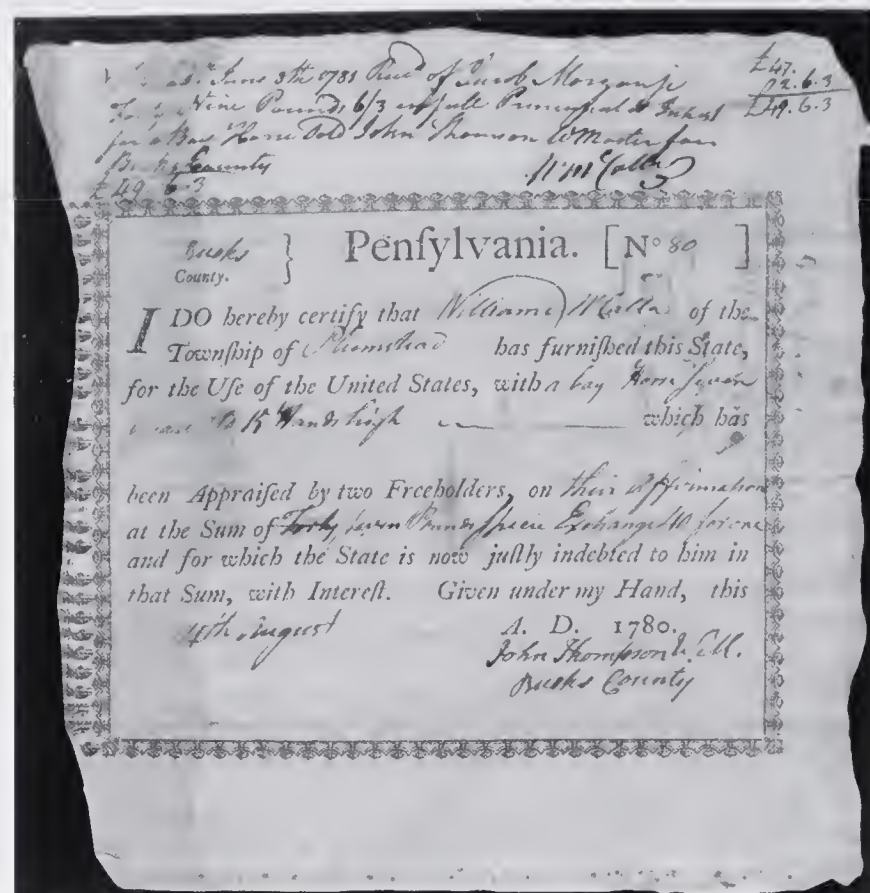 June 8th 1781 Recd of Jacob Morgan jr £47.
Nine Pounds 6/3 in full Principal & Intrest 02.6.3
for a Bay Horse Sold John Thomson W Master for £49.6.3
Bucks County
£49.6.3
Bucks County. } Penſylvania. [No 80 ]
I DO hereby certify that William of the
Townſhip of Plumstead has furniſhed this State,
for the Uſe of the United States, with a bay Horse Seven
15 Hands high which has
been Appraiſed by two Freeholders, on their affirmation
at the Sum of Forty Seven Pounds Specie Exchange 40 for one
and for which the State is now juſtly indebted to him in
that Sum, with Intereſt. Given under my Hand, this
4th August A. D. 1780.
John Thompson
Bucks County